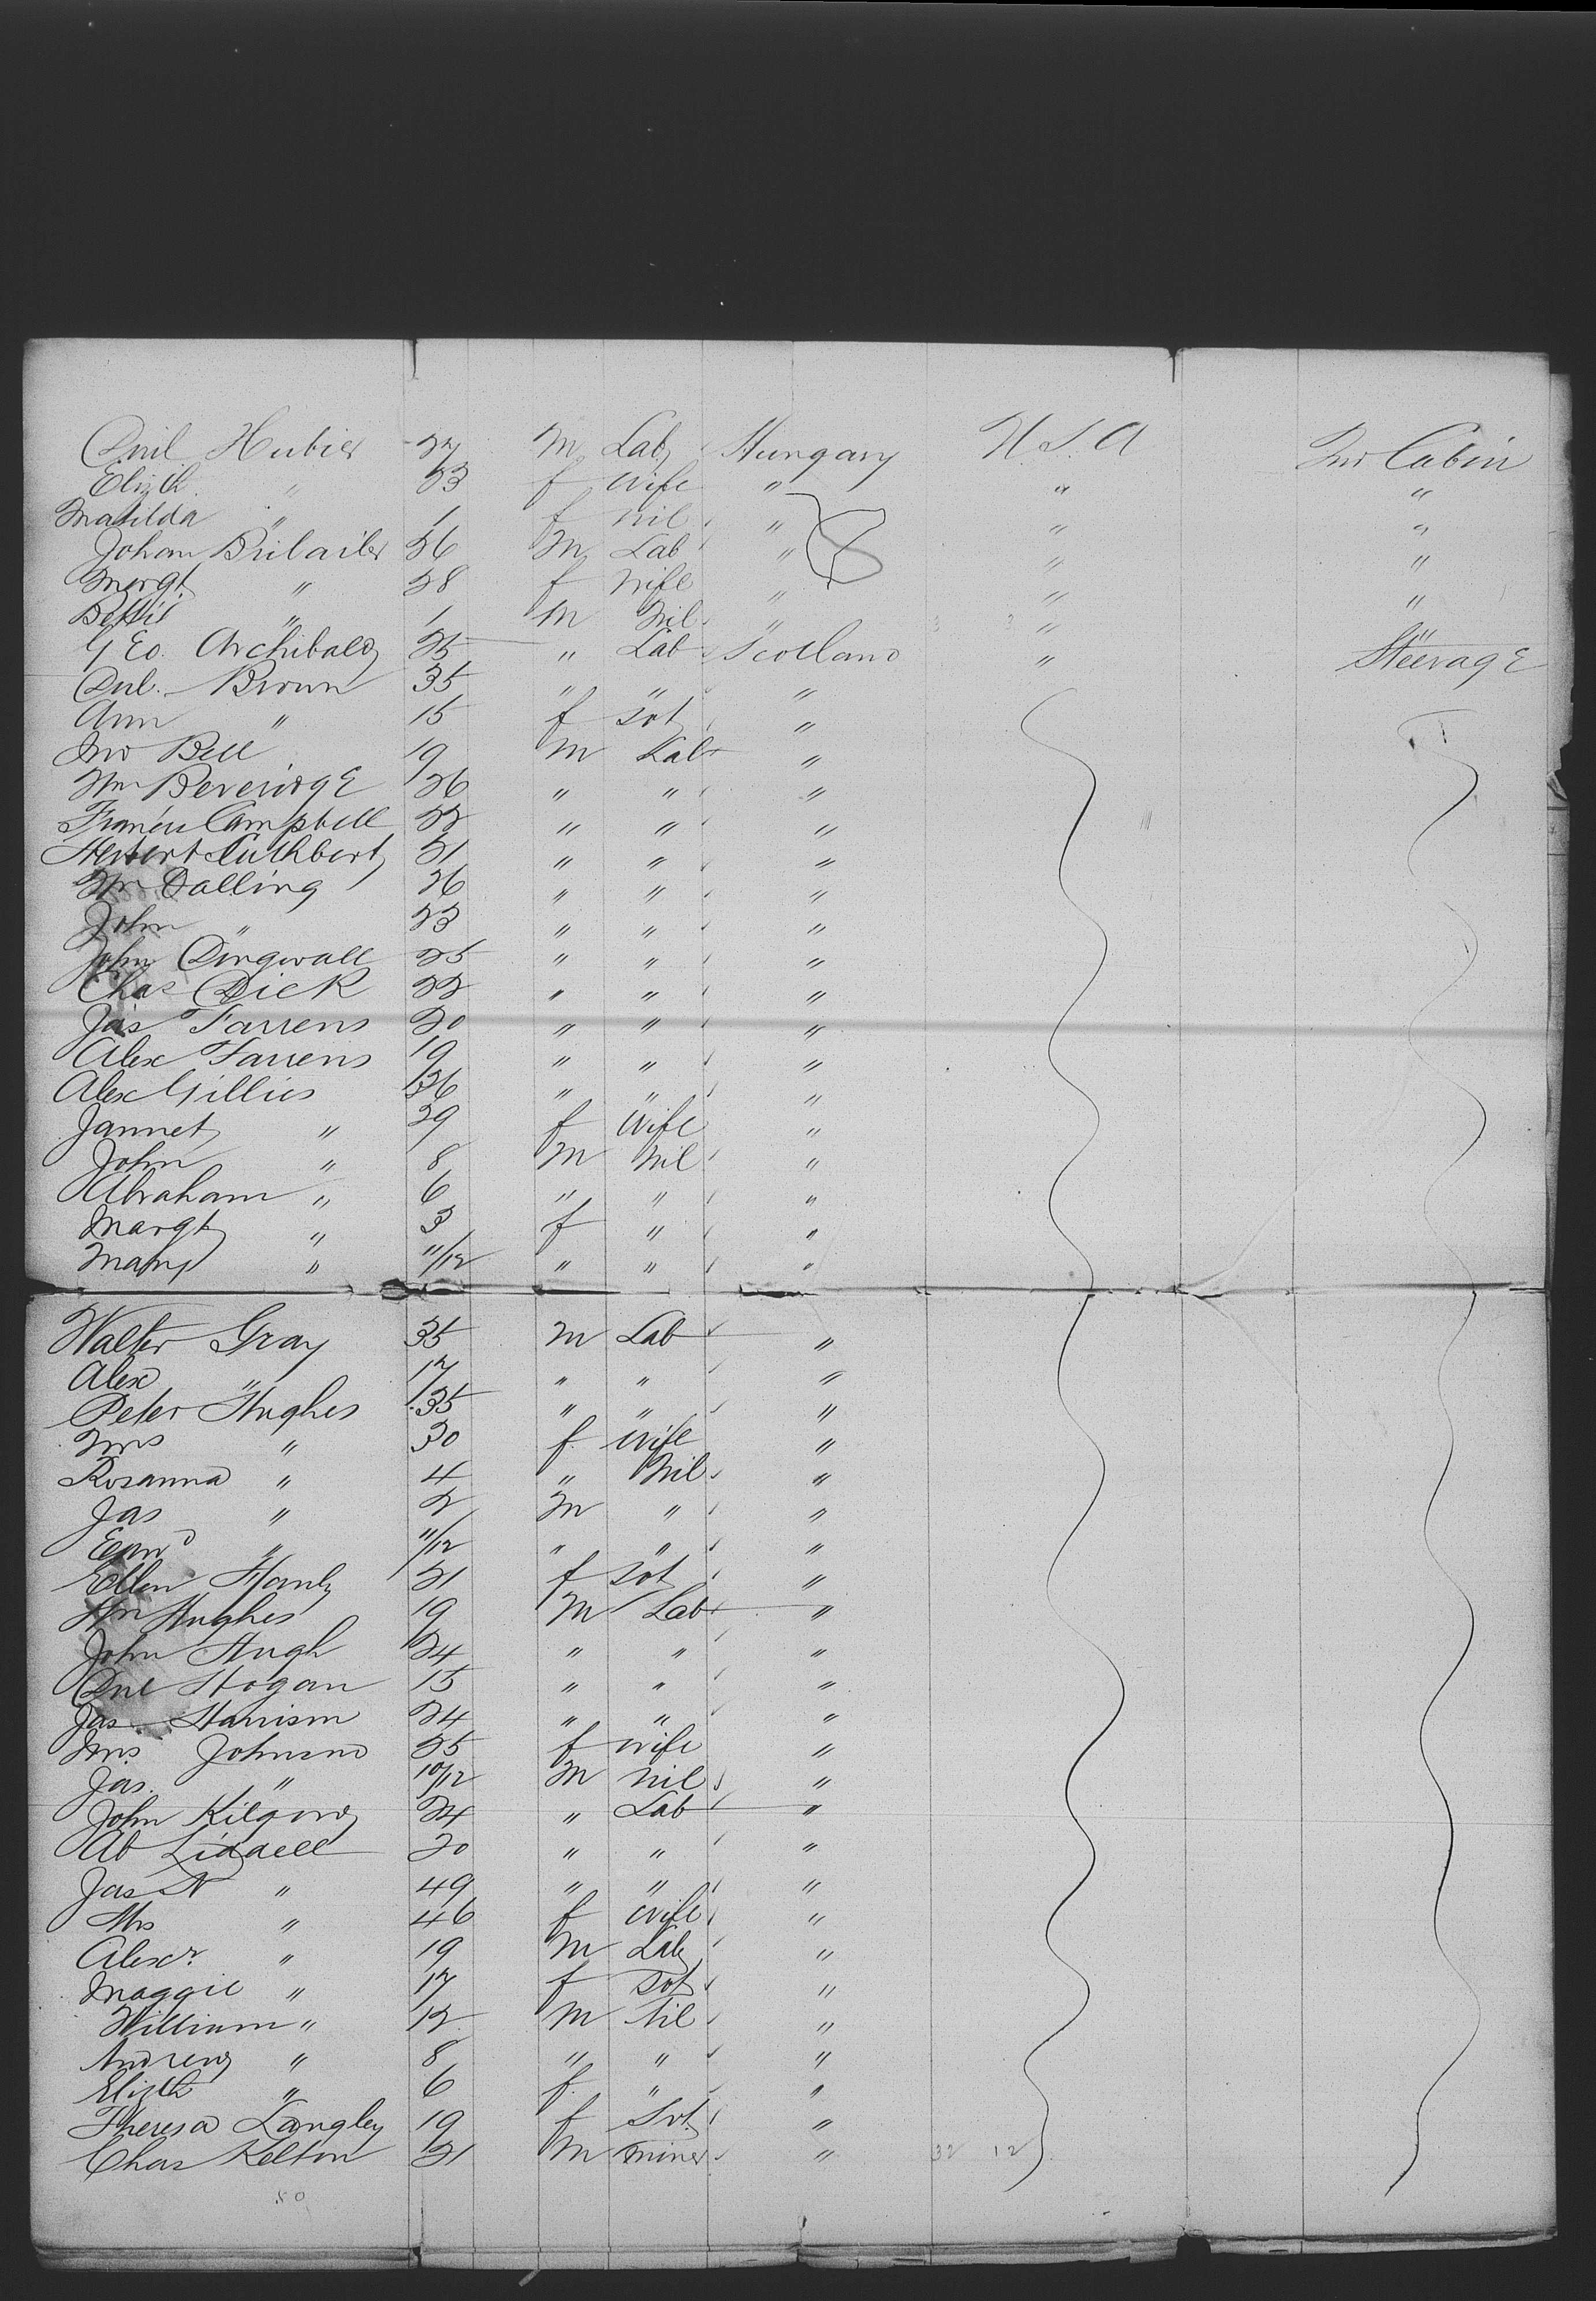 Hubier 27 M Lab Hungary U.S.A Int Cabin
Elizth " 23 f wife " " "
Matilda " 1 f nil " " "
Johan 26 M Lab " " "
Margt " 28 f wife " " "
Bettie " 1 M Nil " " "
Geo. Archibald 25 " Lab Scotland " Steerage
Dnl. Brown 35 " " "
Ann " 15 f Svt "
Jno Bell 19 M Lab "
Wm Beveridge 26 " " "
Francis Campbell 22 " " "
Herbert Cuthbert 21 " " "
Wm Dalling 26 " " "
John " 23 " " "
John Dingwall 25 " " "
Chas Dick 22 " " "
Jas Farrens 20 " " "
Alex Farrens 19 " " "
Alex Gillies 36 " " "
Jannet " 29 f wife "
John " 8 M Nil "
Abraham " 6 " " "
Margt " 3 f " "
Mary " 11/12 " " "
Walter Gray 35 M Lab "
Alex " 17 " " "
Peter Hughes 35 " " "
Mrs " 30 f wife "
Rosanna " 4 " Nil "
Jas " 2 M " "
Edwd " 11/12 " " "
Ellen Hanly 21 f Svt "
Wm Hughes 19 M Lab "
John Hugh 24 " " "
Dnl Hogan 15 " " "
Jas Harrison 24 " " "
Mrs Johnson 25 f wife "
Jas. " 10/12 M Nil "
John Kilgour 24 " Lab "
Ab Liddell 20 " " "
Jas N " 49 " " "
Mrs " 46 f wife "
Alexr. " 19 M Lab "
Maggie " 17 f Svt "
William " 12 M Nil "
Andrew " 8 " " "
Elizth " 6 f " "
Theresa Langley 19 f Svt "
Chas Kelton 21 M miner " 32 12
50